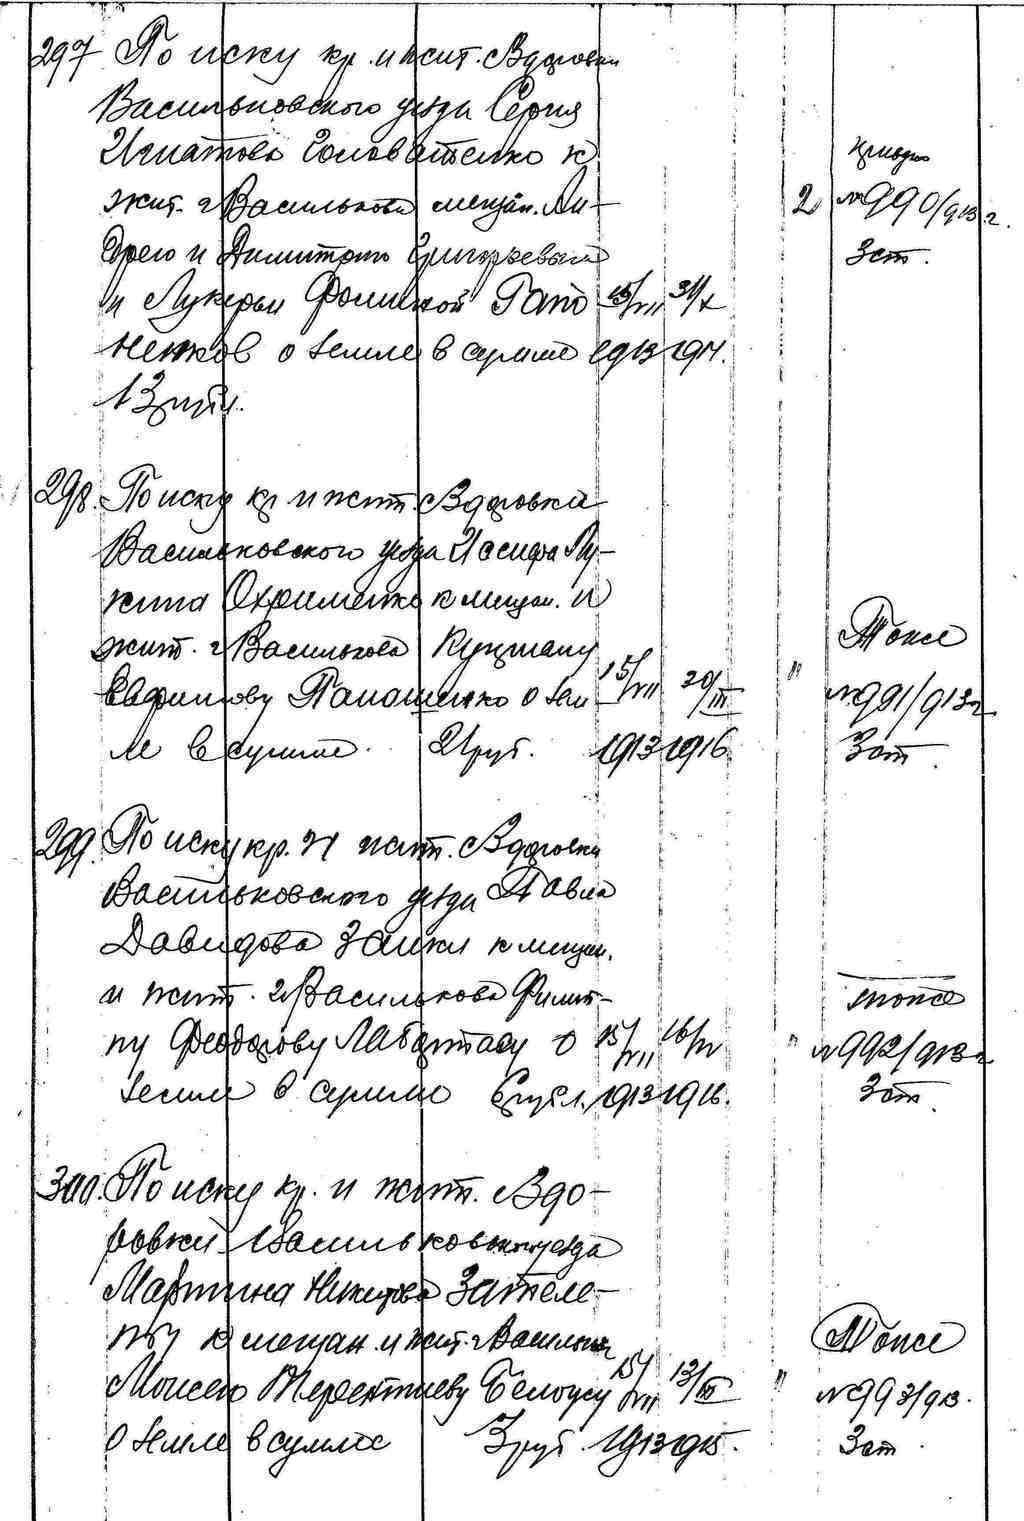 297 По иску кр. и жит. с. Вдовки
Васильковского уезда Сергия
Игнатова Головатенко к
жит. г. Василькова мещан. Ан-
дрею и Димитрию Григорьевым
и Лукерьи Фоминой Гапо
ненков о земле в сумме
13 руб.
15/VII 1913
31/X 1914.
2
№ 990/913 г.
3 ст.
298. По иску кр и жит. с. Вдовки
Васильковского уезда Иосифа Лу-
кина Охрименко к мещан. и
жит. г. Василькова
Евфимову Панашенко о зем
ле в сумме 21 руб.
15/VII 1913
20/III 1916.
"
Тоже
№ 991/913 г
3 ст.
299. По иску кр. и жит. с. Вдовки
Васильковского уезда Павла
Давидова Заики к мещан.
и жит. г. Василькова Филип-
пу Феодорову о
земле в сумме 6 рубл.
15/VII 1913
16/IV 1916.
"
тоже
№ 992/913 г
3 ст.
300. По иску кр. и жит. с. Вдо-
ровки Васильковского уезда
Мартина Никитова Зателе-
пы к мещан. и жит. г. Василькова
Моисею Терентиеву Белоусу
о земле в сумме 3 руб.
15/VII 1913
13/III 1915.
"
Тоже
№ 993/913.
3 ст.